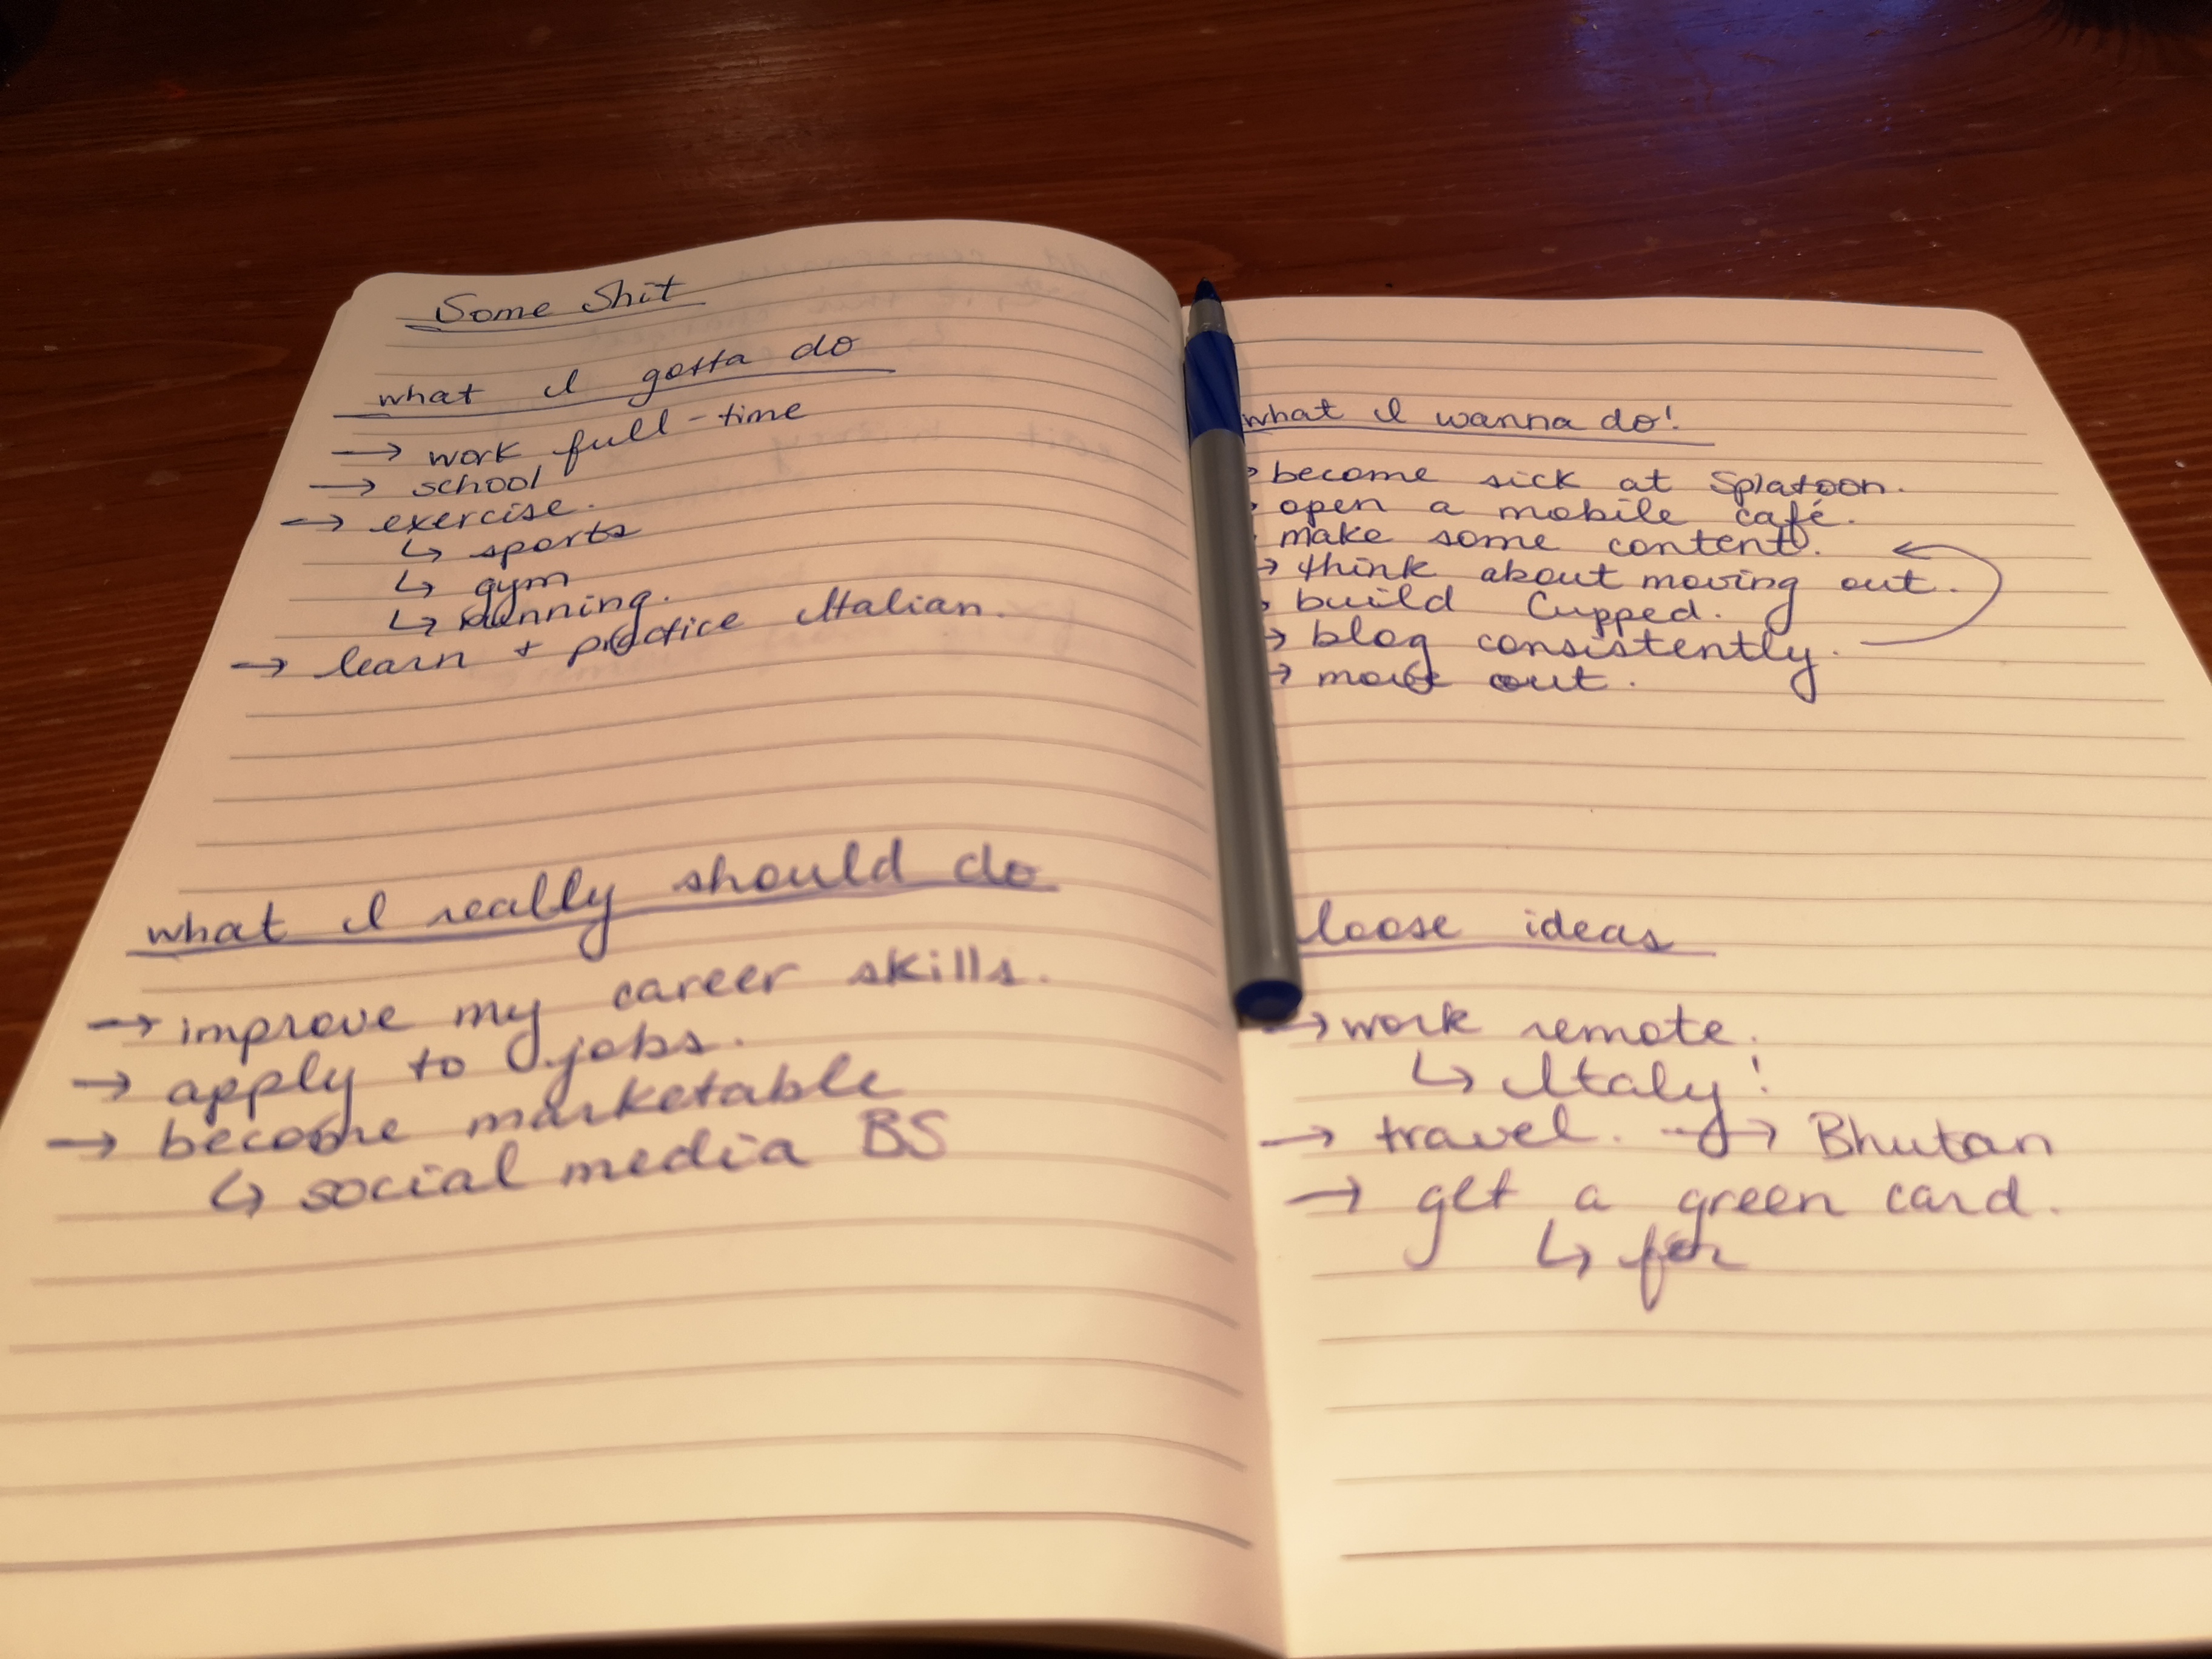 Some Shit
what I gotta do
→ work full-time
→ school
→ exercise.
↳ sports
↳ gym
↳ running.
→ learn + practice Italian.
what I really should do
→ improve my career skills.
→ apply to jobs.
→ become marketable
↳ social media BS
what I wanna do!
→ become sick at Splatoon.
→ open a mobile café.
→ make some content.
→ think about moving out.
→ build Cupped.
→ blog consistently.
→ move out.
loose ideas
→ work remote.
↳ Italy!
→ travel. → Bhutan
→ get a green card.
↳ for